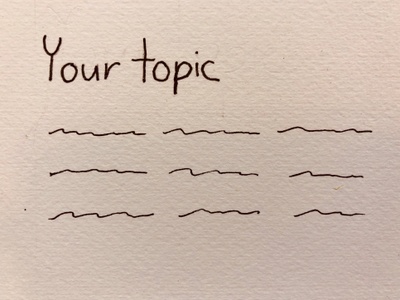 Your topic